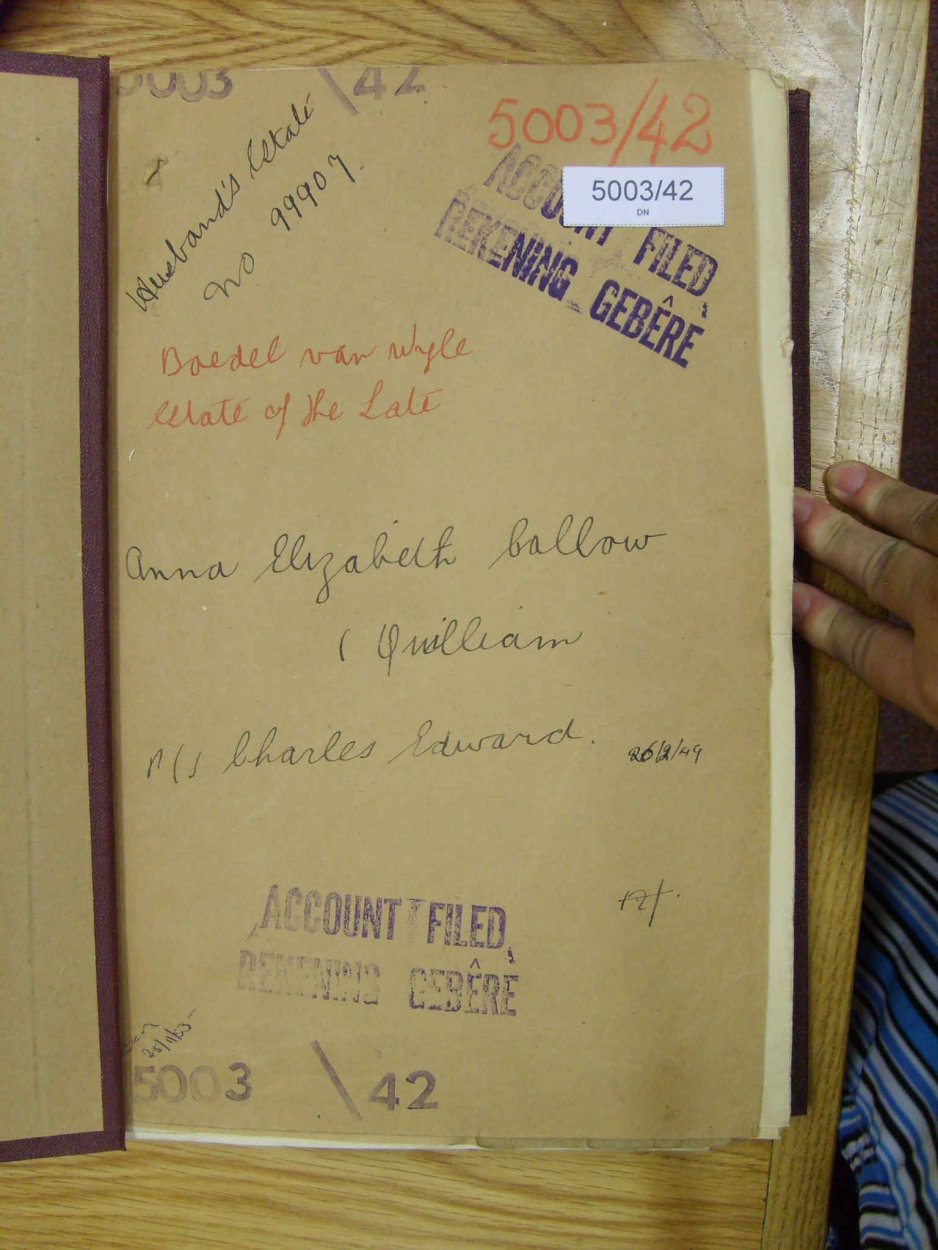 5003 \ 42
5003/42
Husband's Estate
No 99907.
5003/42
DN
ACCOUNT FILED
REKENING GEBÊRE
Boedel van Wyle
Estate of the Late
Anna Elizabeth Callow
( Quilliam
Charles Edward.
26/2/49
ACCOUNT FILED
REKENING GEBÊRE
5003 \ 42